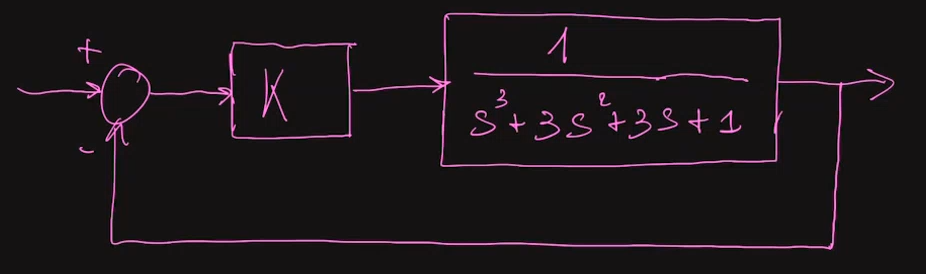 +
K
1
s³+3s²+3s+1
-